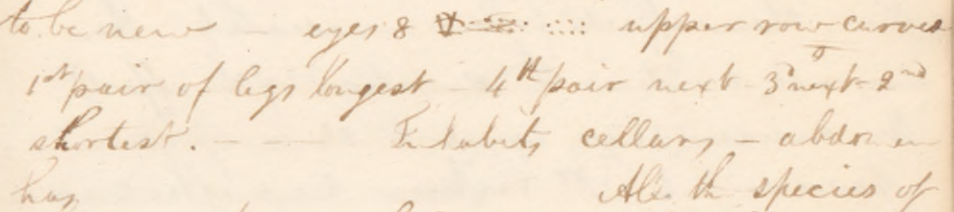 to be new — eyes 8 :::: upper row curved
1st pair of legs longest — 4th pair next - 3d next - 2nd
shortest. — — Inhabits cellars — abdomen
has All the species of